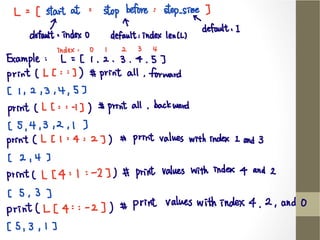 L = [ start at : stop before : step_size ]
default : index 0 default : index len(L) default : 1
index : 0 1 2 3 4
Example : L = [ 1 , 2 , 3 , 4 , 5 ]
print ( L [ : : ] ) # print all , forward
[ 1 , 2 , 3 , 4 , 5 ]
print ( L [ : : -1 ] ) # print all , backward
[ 5 , 4 , 3 , 2 , 1 ]
print ( L [ 1 : 4 : 2 ] ) # print values with index 1 and 3
[ 2 , 4 ]
print ( L [ 4 : 1 : -2 ] ) # print values with index 4 and 2
[ 5 , 3 ]
print ( L [ 4 : : -2 ] ) # print values with index 4 , 2 , and 0
[ 5 , 3 , 1 ]